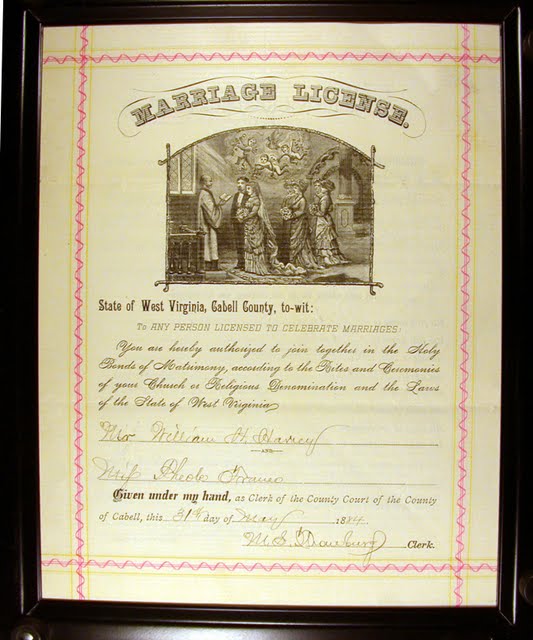 MARRIAGE LICENSE.
State of West Virginia, Cabell County, to-wit:
To ANY PERSON LICENSED TO CELEBRATE MARRIAGES:
You are hereby authorized to join together in the Holy
Bonds of Matrimony, according to the Rites and Ceremonies
of your Church or Religious Denomination and the Laws
of the State of West Virginia
Mr William H. Harvey
AND
Miss
Given under my hand, as Clerk of the County Court of the County
of Cabell, this 31st day of May 1884
Clerk.